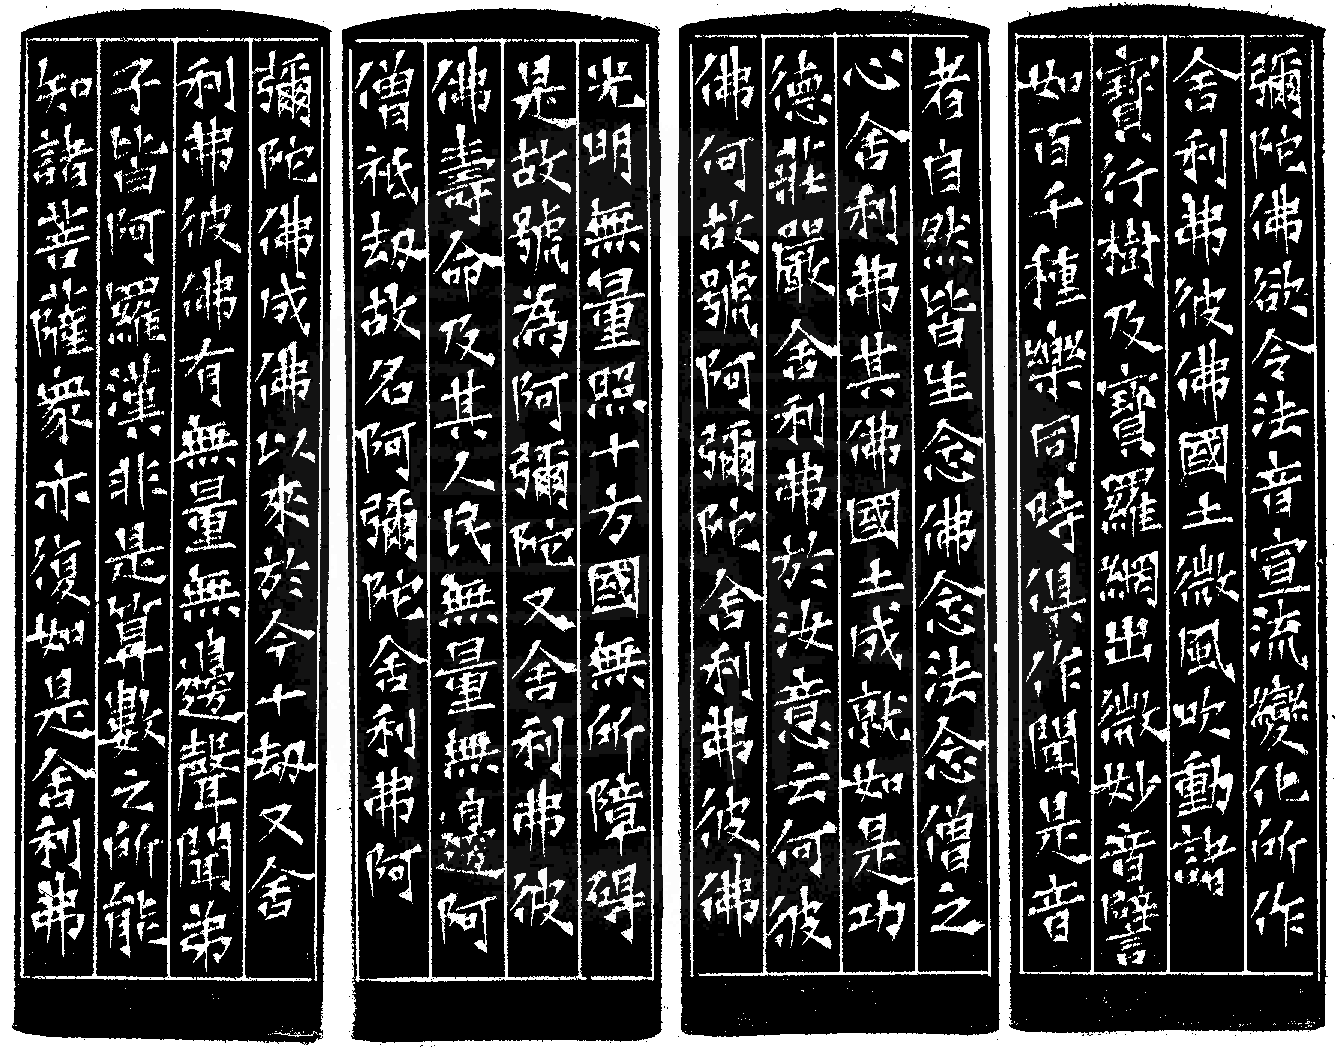 彌陀佛欲令法音宣流變化所作
舍利弗彼佛國土微風吹動諸
寶行樹及寶羅網出微妙音譬
如百千種樂同時俱作聞是音
者自然皆生念佛念法念僧之
心舍利弗其佛國土成就如是功
德莊嚴舍利弗於汝意云何彼
佛何故號阿彌陀舍利弗彼佛
光明無量照十方國無所障碍
是故號為阿彌陀又舍利弗彼
佛壽命及其人民無量無邊阿
僧祇劫故名阿彌陀舍利弗阿
彌陀佛成佛以來於今十劫又舍
利弗彼佛有無量無邊聲聞弟
子皆阿羅漢非是算數之所能
知諸菩薩衆亦復如是舍利弗